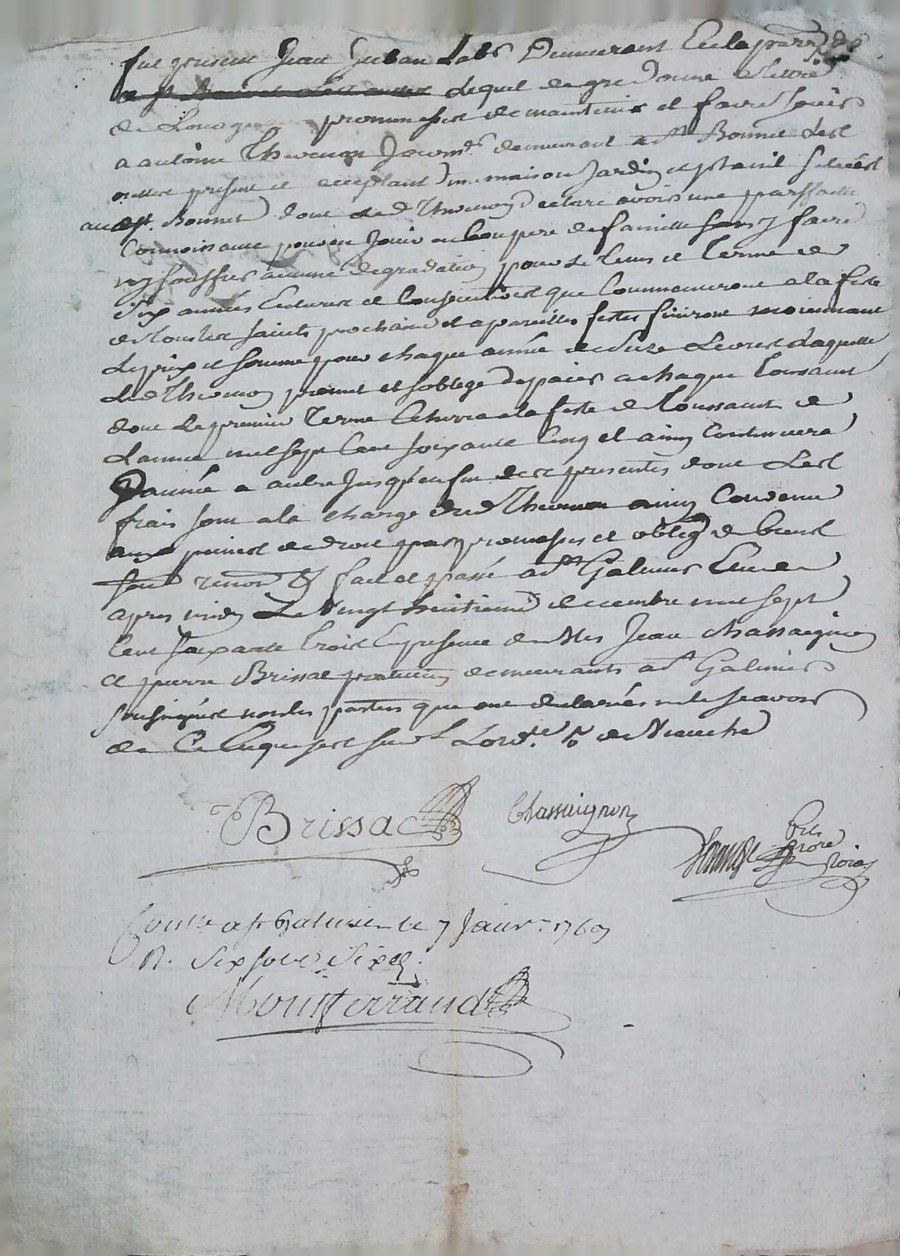 fut present Jean Juban Lab.r Demeurant En la parr.
Lequel de gre donne a tittre
de Louage promesses de maintenir et faire Jouir
a antoine Thevenon Journ. demeurant a st Bonnet Les
present et acceptant une maison Jardin et situées
aud st. Bonnet dont Led Thevenon declare avoir une parffaitte
Connoissance pour en Jouir en bon pere de famille sans y faire
ny souffrir aucune degradation pour Le tems et terme de
six années Entieres et Consecutives que Commanceront a la feste
de toustes saints prochaine et a pareilles festes finiront moiennant
Le prix et somme pour chaque année de Livres Laquelle
Led Thevenon promet et soblege de paier a chaque toussaint
dont Le premier terme Echerra a la feste de toussaint de
Lannée mil sept Cent soixante Cinq et ainsy Continuera
Dannée a autre Jusqu'en fin des presentes dont Les
frais sont a la charge dud Thevenon ainsy Convenu
aux peines de droit par promesses et oblig. de biens
renon. & fait et passé a st Galmier Etude
apres midy Le vingt huitieme decembre mil sept
Cent soixante trois En presence de Mes Jean chassaignon
et pierre Brissac praticiens demeurants a st Galmier
soussignés non les parties que ont declarés ne le scavoir
de Ce Enquises sur L'ord.
Brissac
Chassaignon
fils
Conttr. a st Galmier le 7 Janv.r
R. six sols six d.
Montferrand